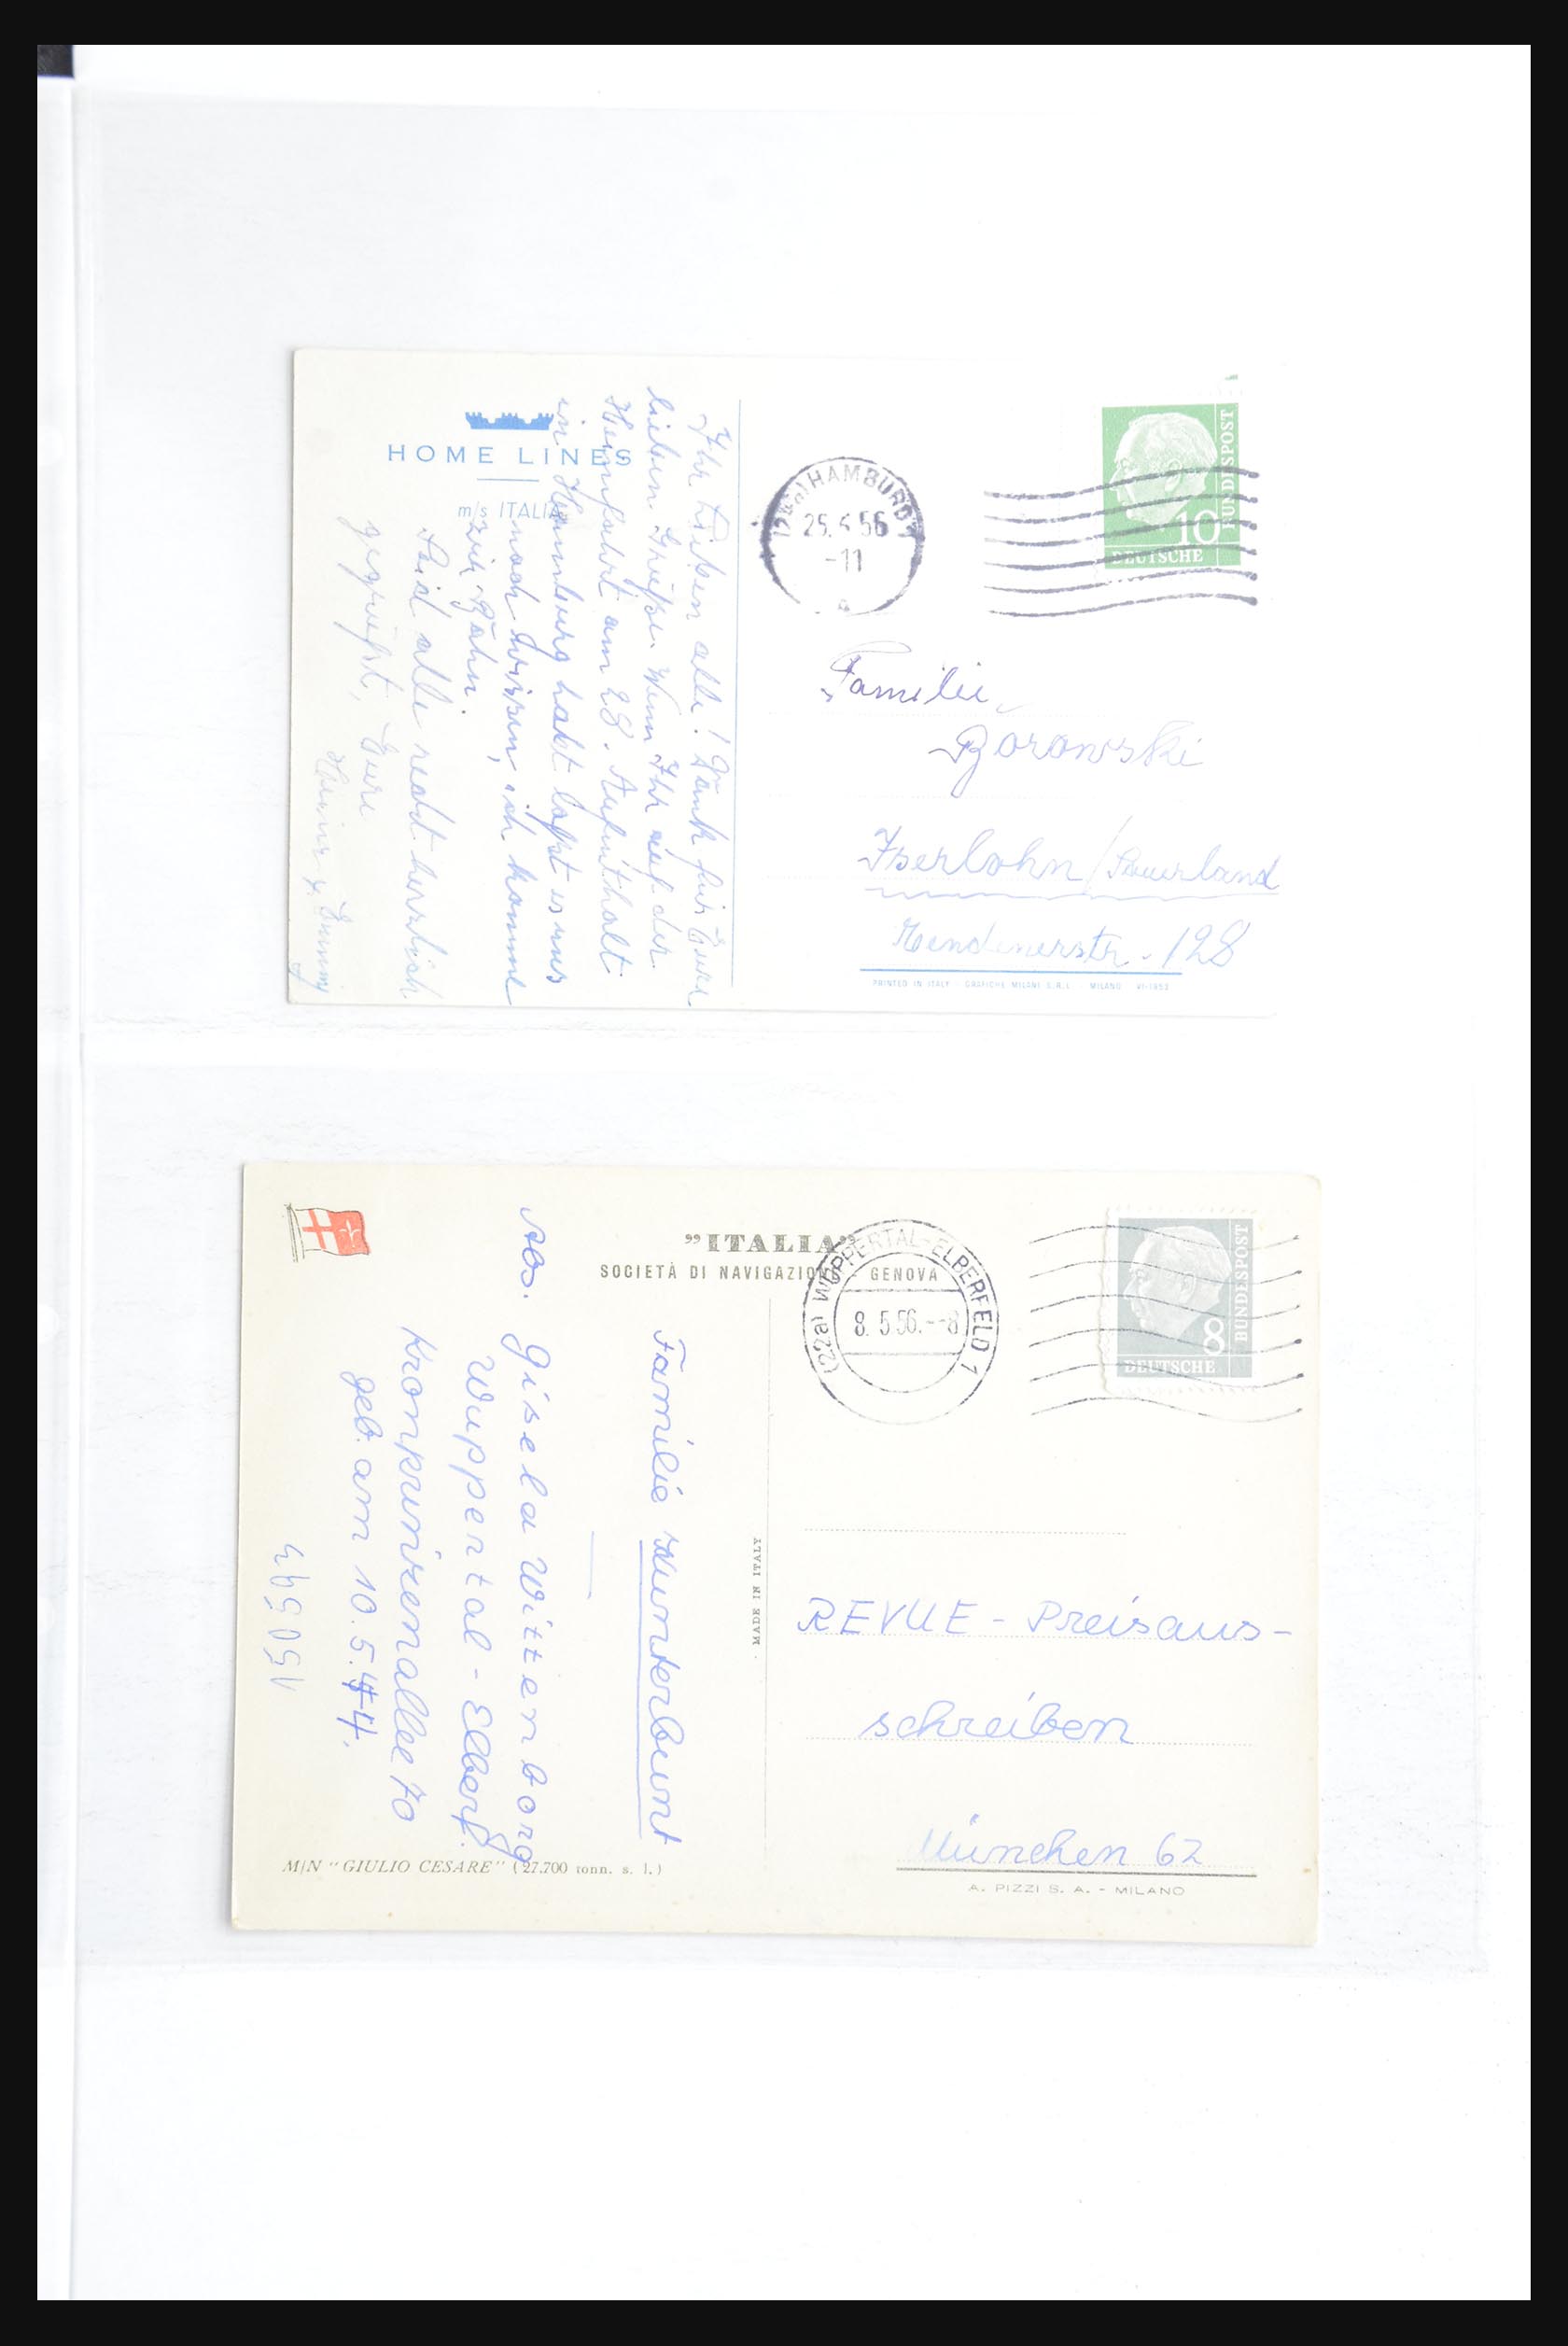 HOME LINES
m/s ITALIA
Ihr Lieben alle! Dank für Eure
lieben Grüße. Wenn Ihr auf der
Heimfahrt am 28. Aufenthalt
in Hamburg habt laßt es uns
noch wissen, ich komme
zur Bahn.
Seid alle recht herzlich
gegrüßt, Eure
(24a) HAMBURG 1
25. 56
-11
a
10
DEUTSCHE
BUNDESPOST
Familie
Borowski
Iserlohn / Sauerland
Mendenerstr. 128
PRINTED IN ITALY - GRAFICHE MILANI S.R.L. MILANO VI-1953
"ITALIA"
SOCIETÀ DI NAVIGAZIONE - GENOVA
Familie Kunterbunt
Abs. Gisela Wittenborg
Wuppertal-Elberf.
Kronprinzenallee 70
geb. am 10.5.44.
15059
M/N "GIULIO CESARE" (27.700 tonn. s. l.)
MADE IN ITALY
(22a) WUPPERTAL-ELBERFELD 1
8. 5 56. - -8
8
DEUTSCHE
BUNDESPOST
REVUE - Preisaus-
schreiben
München 62
A. PIZZI S. A. - MILANO